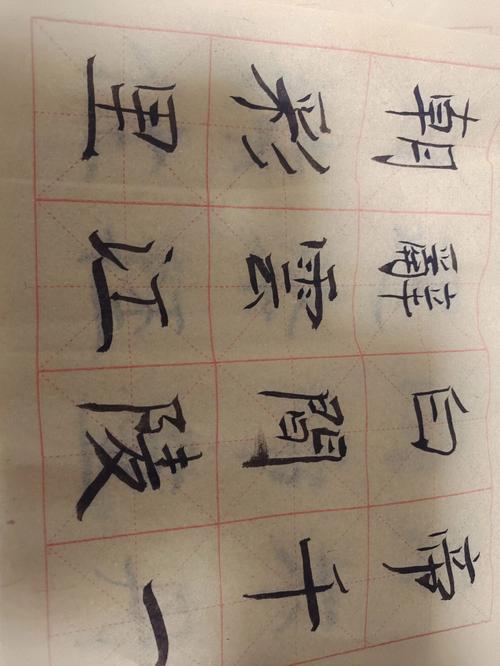 朝辭白帝
彩雲間千
里江陵一